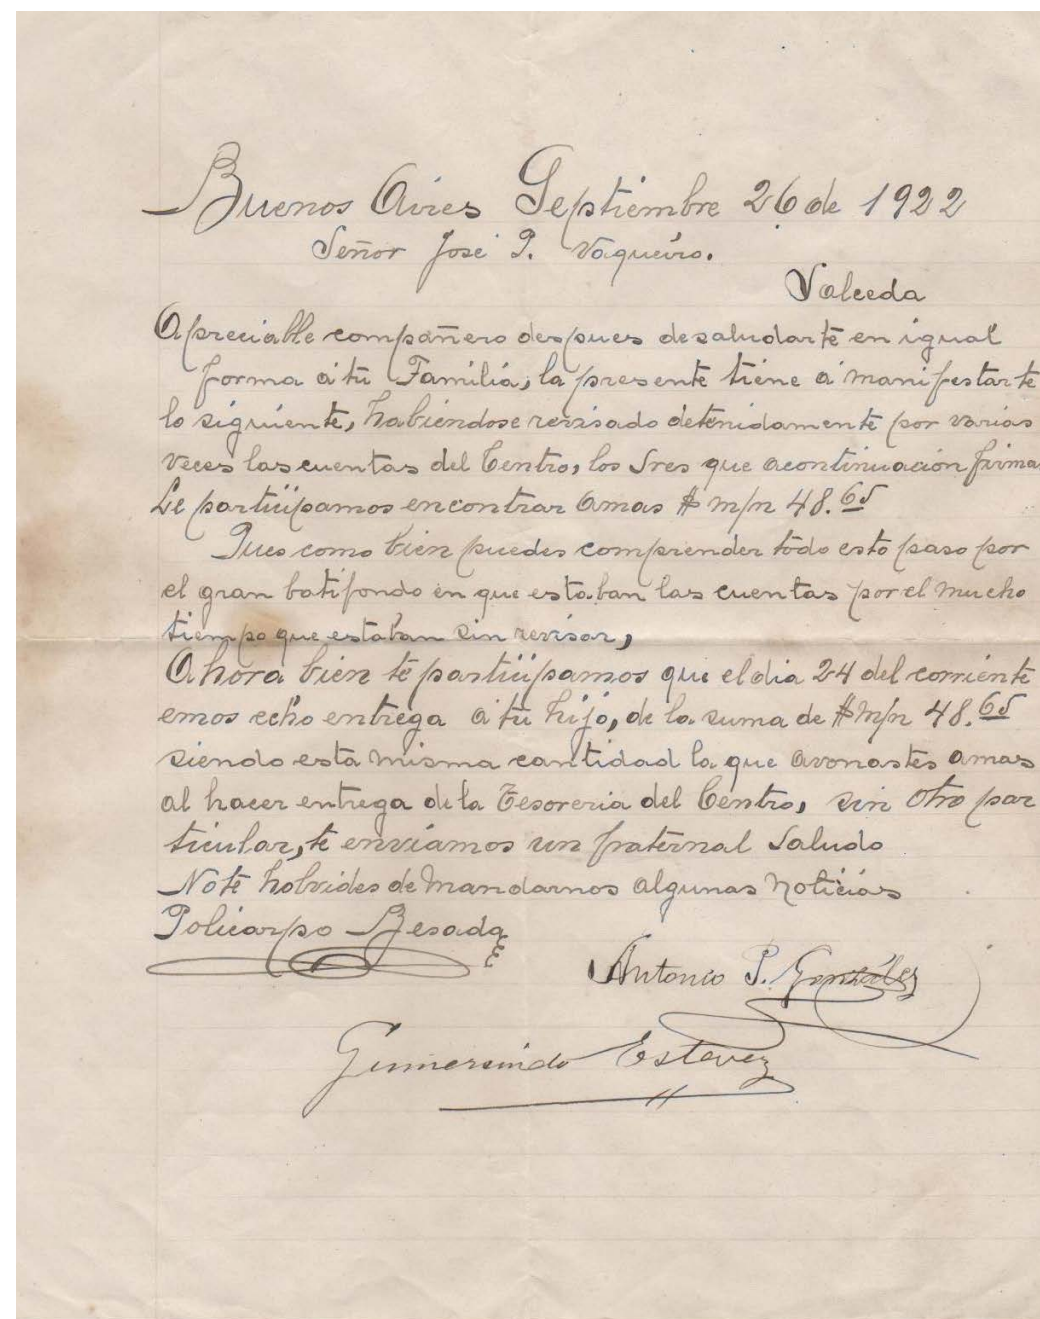 Buenos Aires Septiembre 26 de 1922
Señor José P. Vaqueiro.
Salceda
Apreciable compañero despues desaludarte en igual
forma á tu Familia, la presente tiene á manifestarte
lo siguiente, habiendose revisado detenidamente por varias
veces las cuentas del Centro, los Sres que acontinuación firma
Le partiipamos encontrar amas $ m/n 48.65
Pues como bien puedes comprender todo esto paso por
el gran batifondo en que estaban las cuentas por el mucho
tiempo que estaban sin revisar,
Ahora bien te partiipamos que el dia 24 del corriente
emos echo entrega a tu hijo, de la suma de $ m/n 48.65
siendo esta misma cantidad la que avonastes amas
al hacer entrega de la Tesoreria del Centro, sin otro par
ticular, te enviamos un fraternal Saludo
No te holvides de mandarnos algunas noticias
Policarpo Besada
Antonio P. González
Gumersindo Estevez